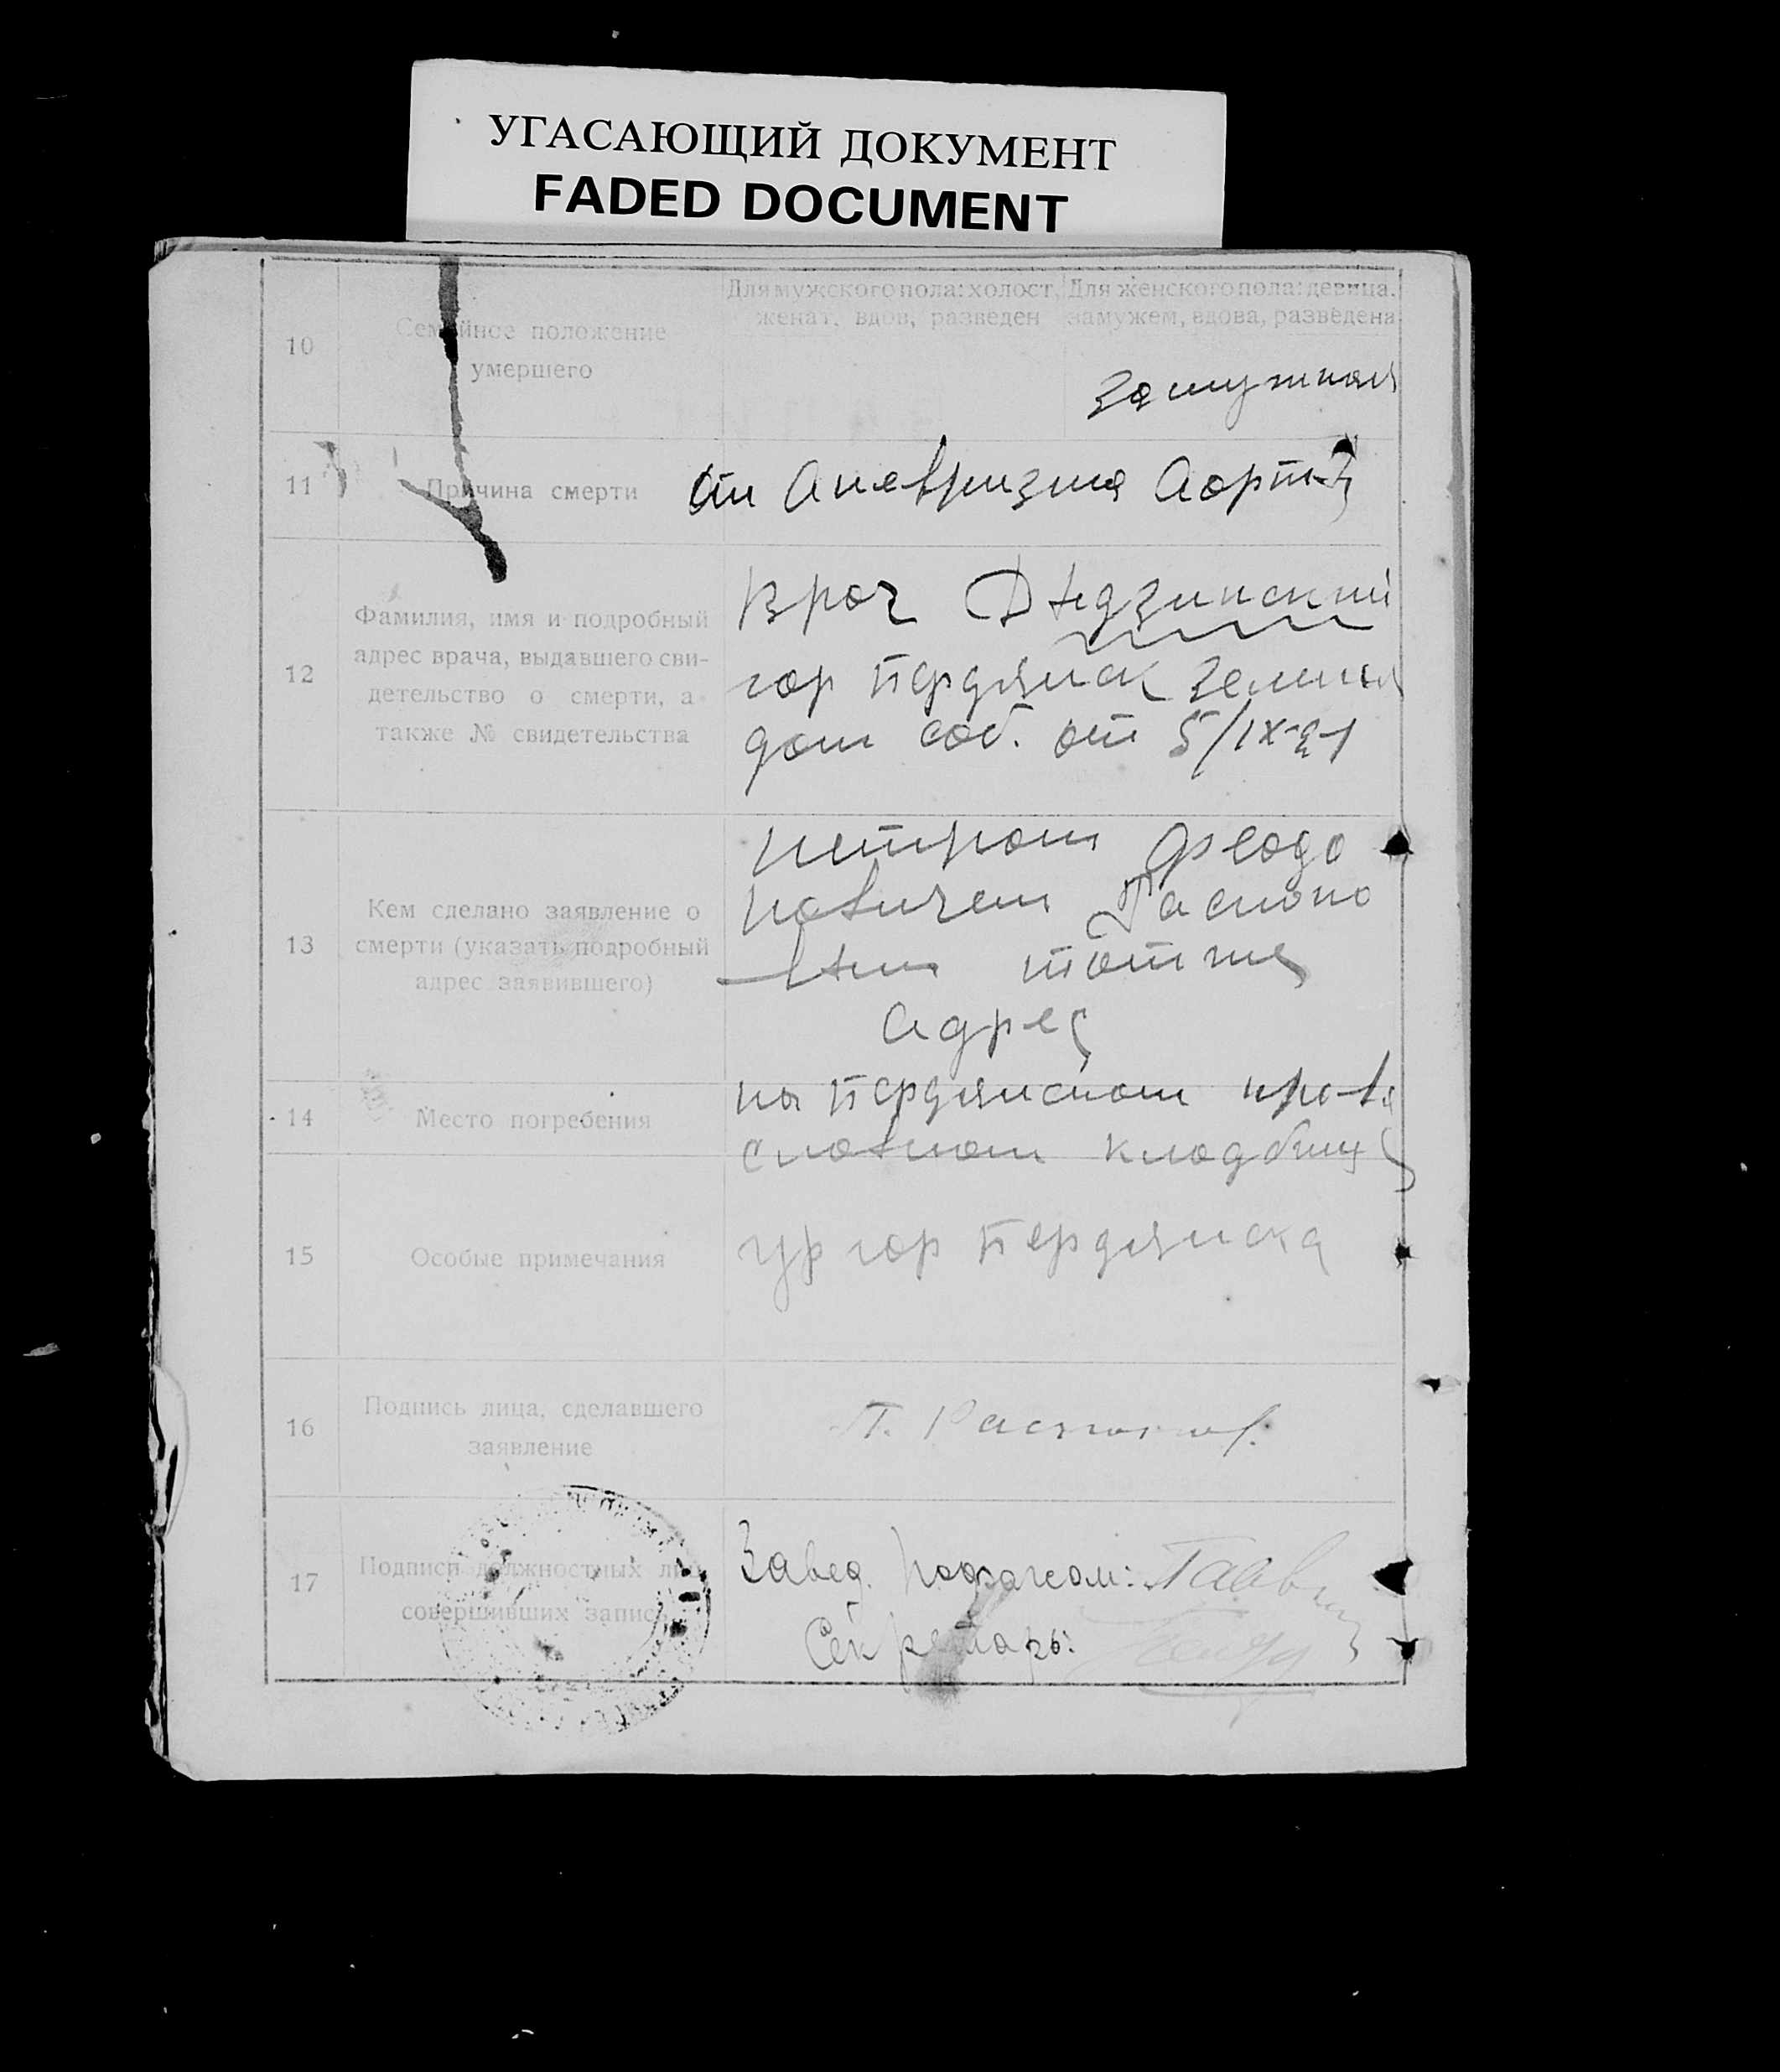 УГАСАЮЩИЙ ДОКУМЕНТ
FADED DOCUMENT
10
Семейное положение
умершего
Для мужского пола: холост,
женат, вдов, разведен
Для женского пола: девица,
замужем, вдова, разведена
замужняя
11
Причина смерти
от Аневризма Аорты
12
Фамилия, имя и подробный
адрес врача, выдавшего сви-
детельство о смерти, а
также № свидетельства
Врач
гор Бердянск
дом соб. от 5/IX-21
13
Кем сделано заявление о
смерти (указать подробный
адрес заявившего)
Петром Феодо
тотже
Адрес
14
Место погребения
на Бердянском права
славном кладбище
15
Особые примечания
гр гор Бердянска
16
Подпись лица, сделавшего
заявление
17
Подписи должностных лиц,
совершивших запись
Завед.
Секретарь: